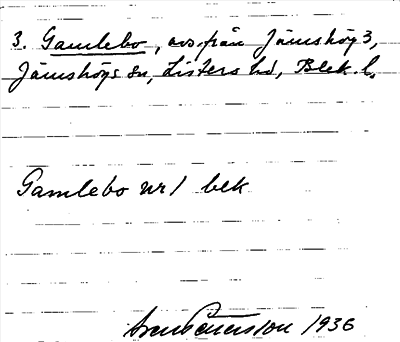 3. Gamlebo, avs. från Jämshög 3,
Jämshögs sn, Listers hd, Blek. l.
Gamlebo nr 1 blek
1936